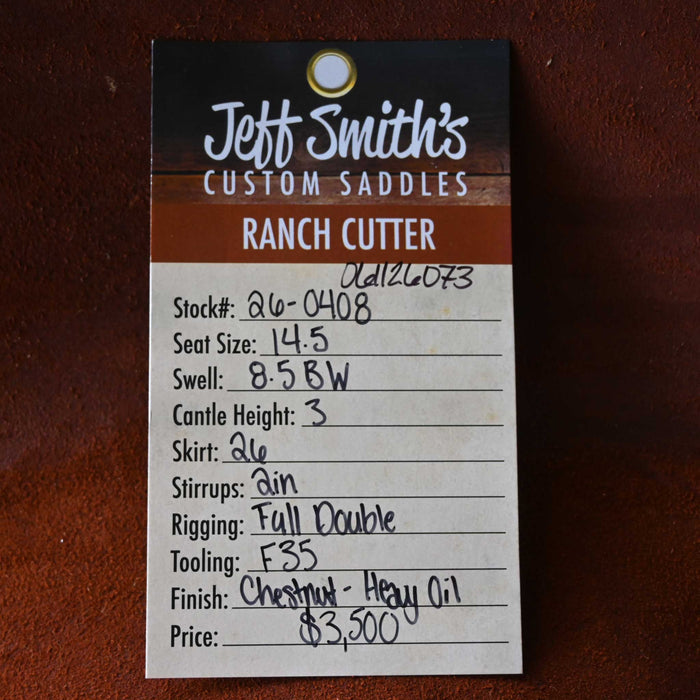 Jeff Smith's
CUSTOM SADDLES
RANCH CUTTER
Stock#: 26-0408
Seat Size: 14.5
Swell: 8.5 BW
Cantle Height: 3
Skirt: 26
Stirrups: 2in
Rigging: Full Double
Tooling: F35
Finish: Chestnut - Heavy Oil
Price: $3,500